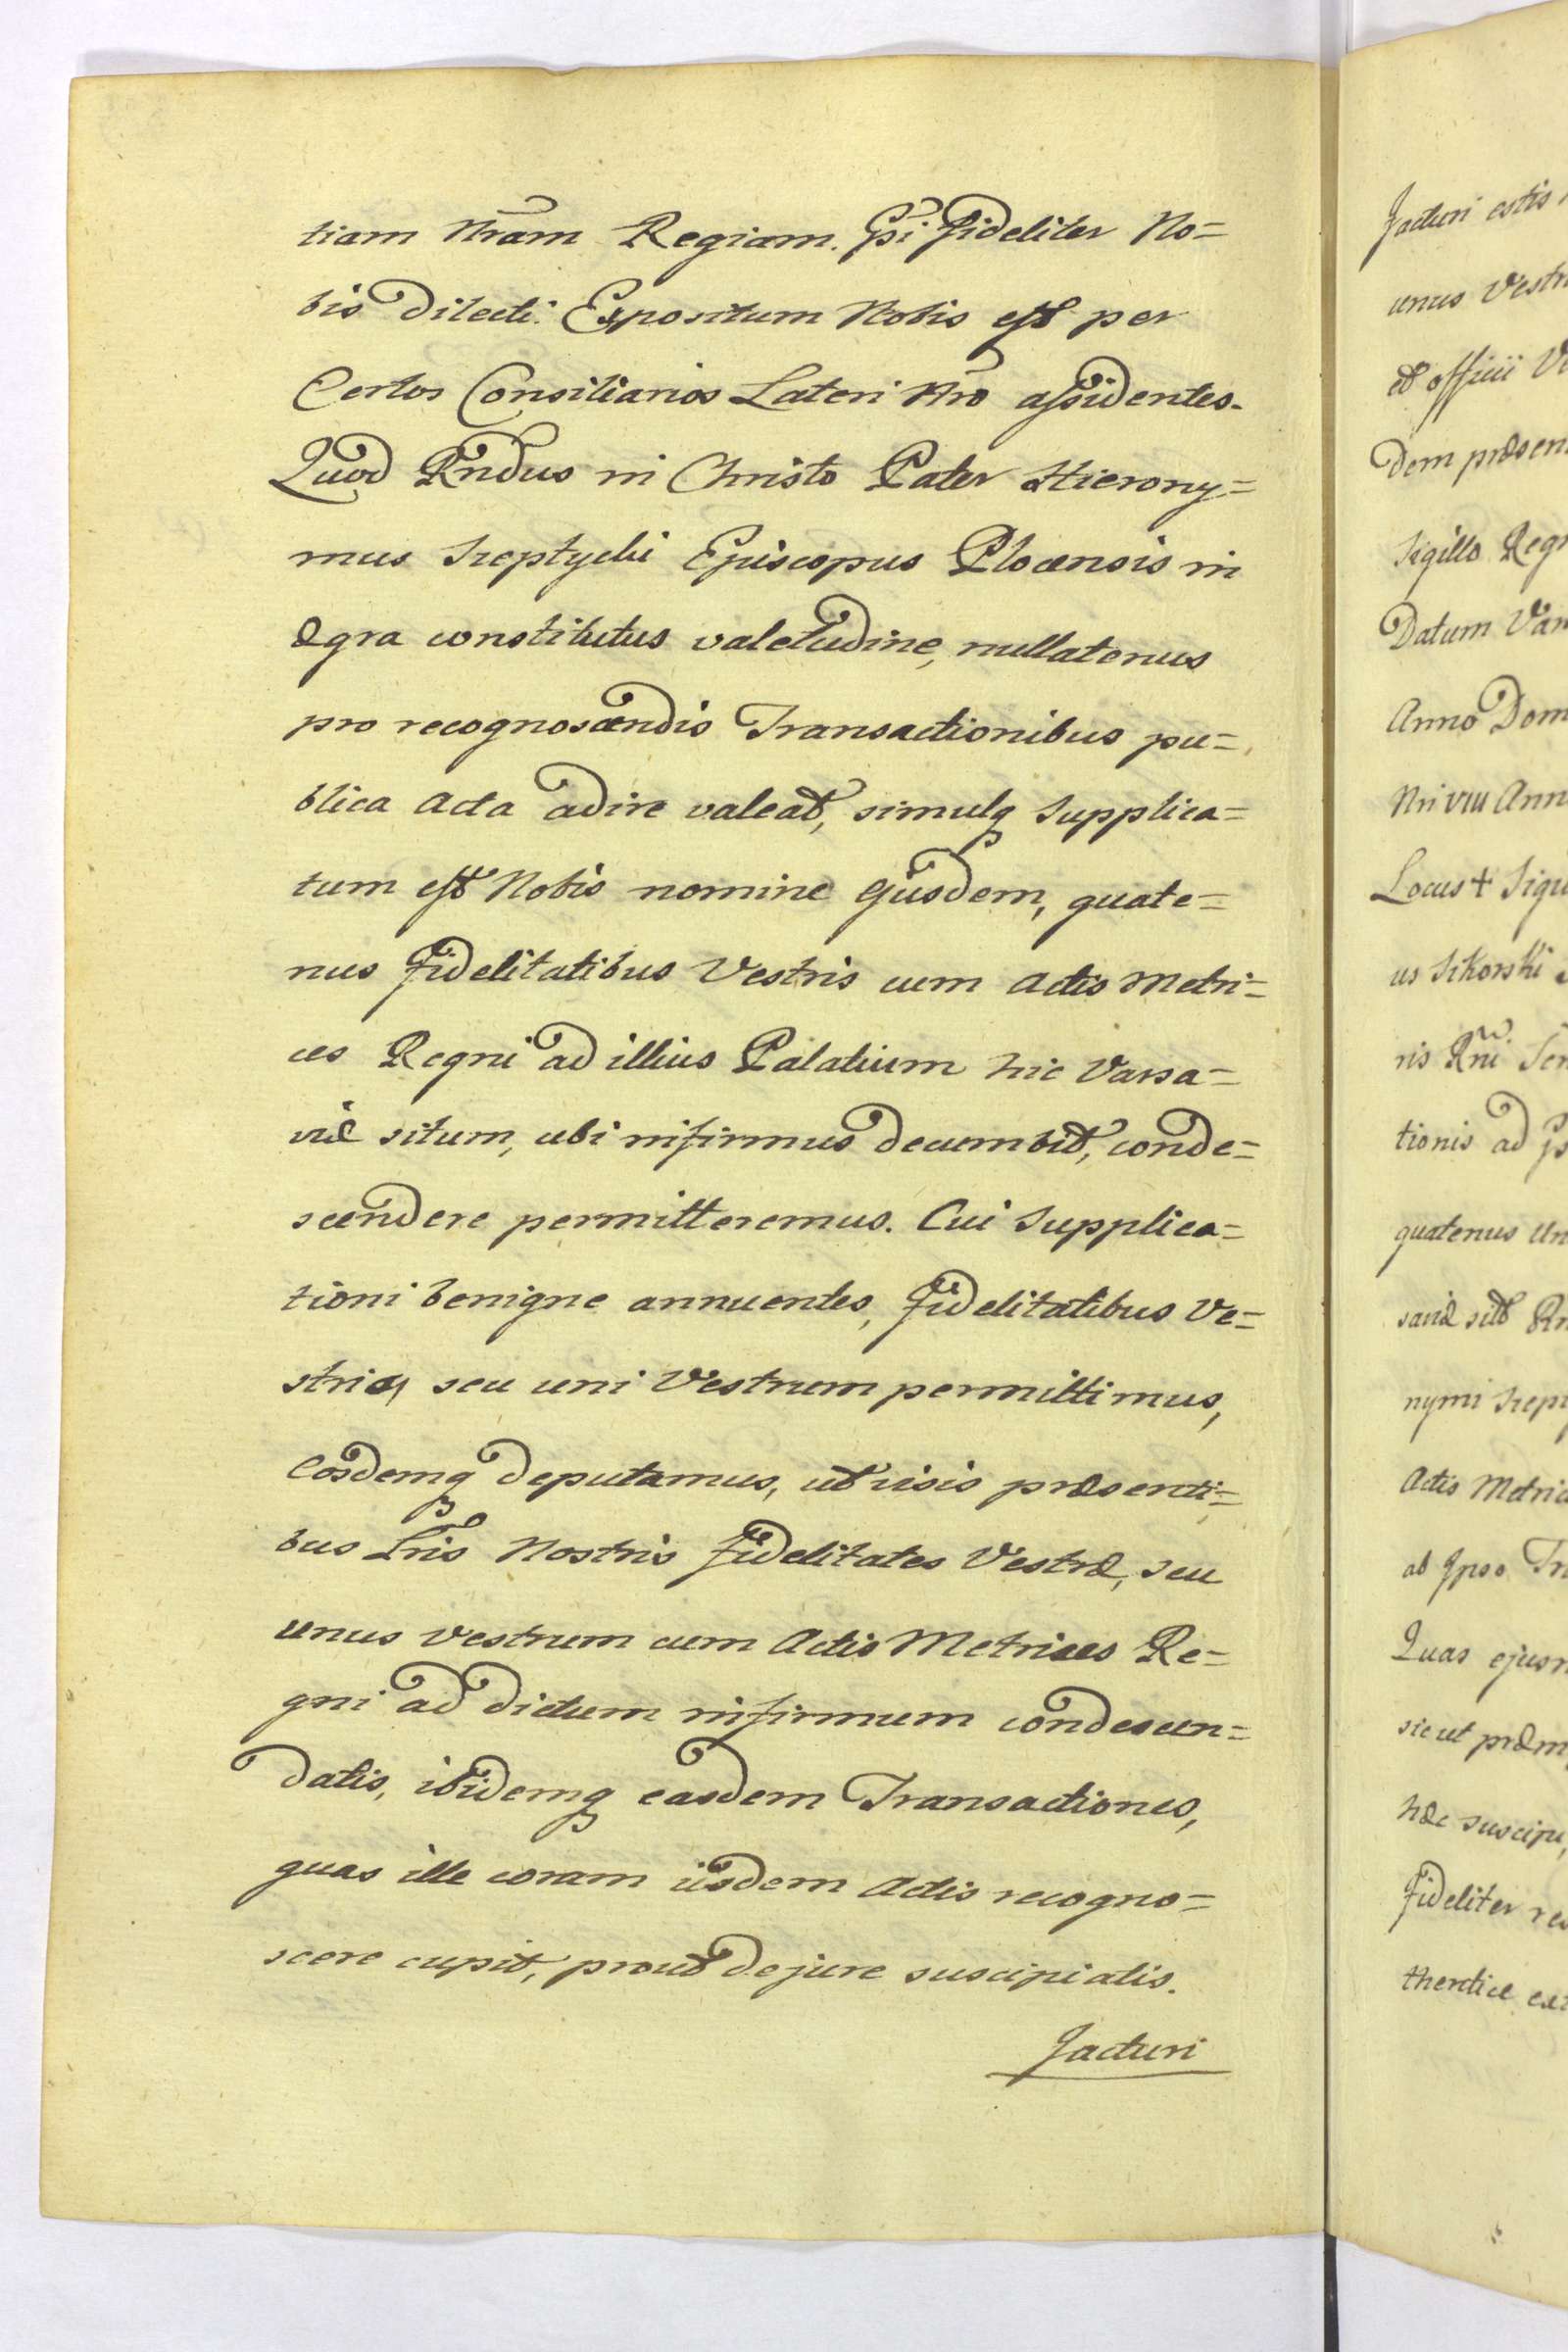 tiam Nram Regiam. Gsi fideliter No=
bis Dilecti. Expositum Nobis est per
Certos Consiliarios Lateri Nro assidentes.
Quod Rndus in Christo Pater Hierony=
mus Szeptycki Episcopus Plocensis in
ægra constitutus valetudine, nullatenus
pro recognoscendis Transactionibus pu=
blica Acta adire valeat, simulq supplica=
tum est Nobis nomine Ejusdem, quate=
nus Fidelitatibus Vestris cum Actis Metri=
ces Regni ad illius Palatium hic Varsa=
viæ situm, ubi infirmus decumbit, conde=
scendere permitteremus. Cui Supplica=
tioni benigne annuentes, Fidelitatibus Ve=
stris, seu uni Vestrum permittimus,
Eosdemq deputamus, ut visis præsenti=
bus Lris Nostris Fidelitates Vestræ, seu
unus vestrum cum Actis Metrices Re=
gni ad dictum infirmum condescen=
datis, ibidemq easdem Transactiones,
quas ille coram iisdem Actis recogno=
scere cupit, prout de jure suscipiatis.
Facturi
Facturi estis
unus Vestr
et officii Ve
dem præsen
Sigillo Reg
Datum Var
Anno Dom
Nri VIII Ann
Locus + Sigi
us Sikorski
ris Rni
tionis ad
quatenus un
saviæ sit
nymi Szept
Actis Metric
ab Ipso Tr
Quas ejusm
sicut præm
hæc suscipi
fideliter re
thentice